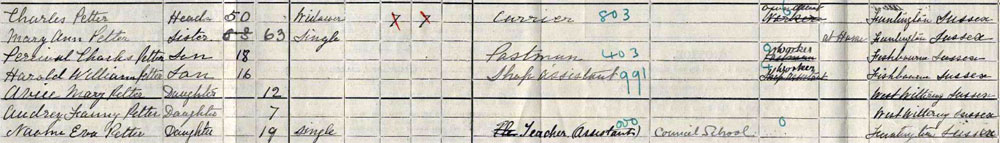 Charles Petter Head 50 Widower X X Currier 803 Funtington Sussex
Mary Ann Petter Sister 63 Single at Home Funtington Sussex
Percival Charles Petter Son 18 Postman 403 Worker Fishbourne Sussex
Harold William Petter Son 16 Shop assistant 991 Worker Fishbourne Sussex
Avice Mary Petter Daughter 12 West Wittering Sussex
Audrey Fanny Petter Daughter 7 West Wittering Sussex
Naomi Eva Petter Daughter 19 Single Teacher (Assistant) 000 Council School 0 Funtington Sussex